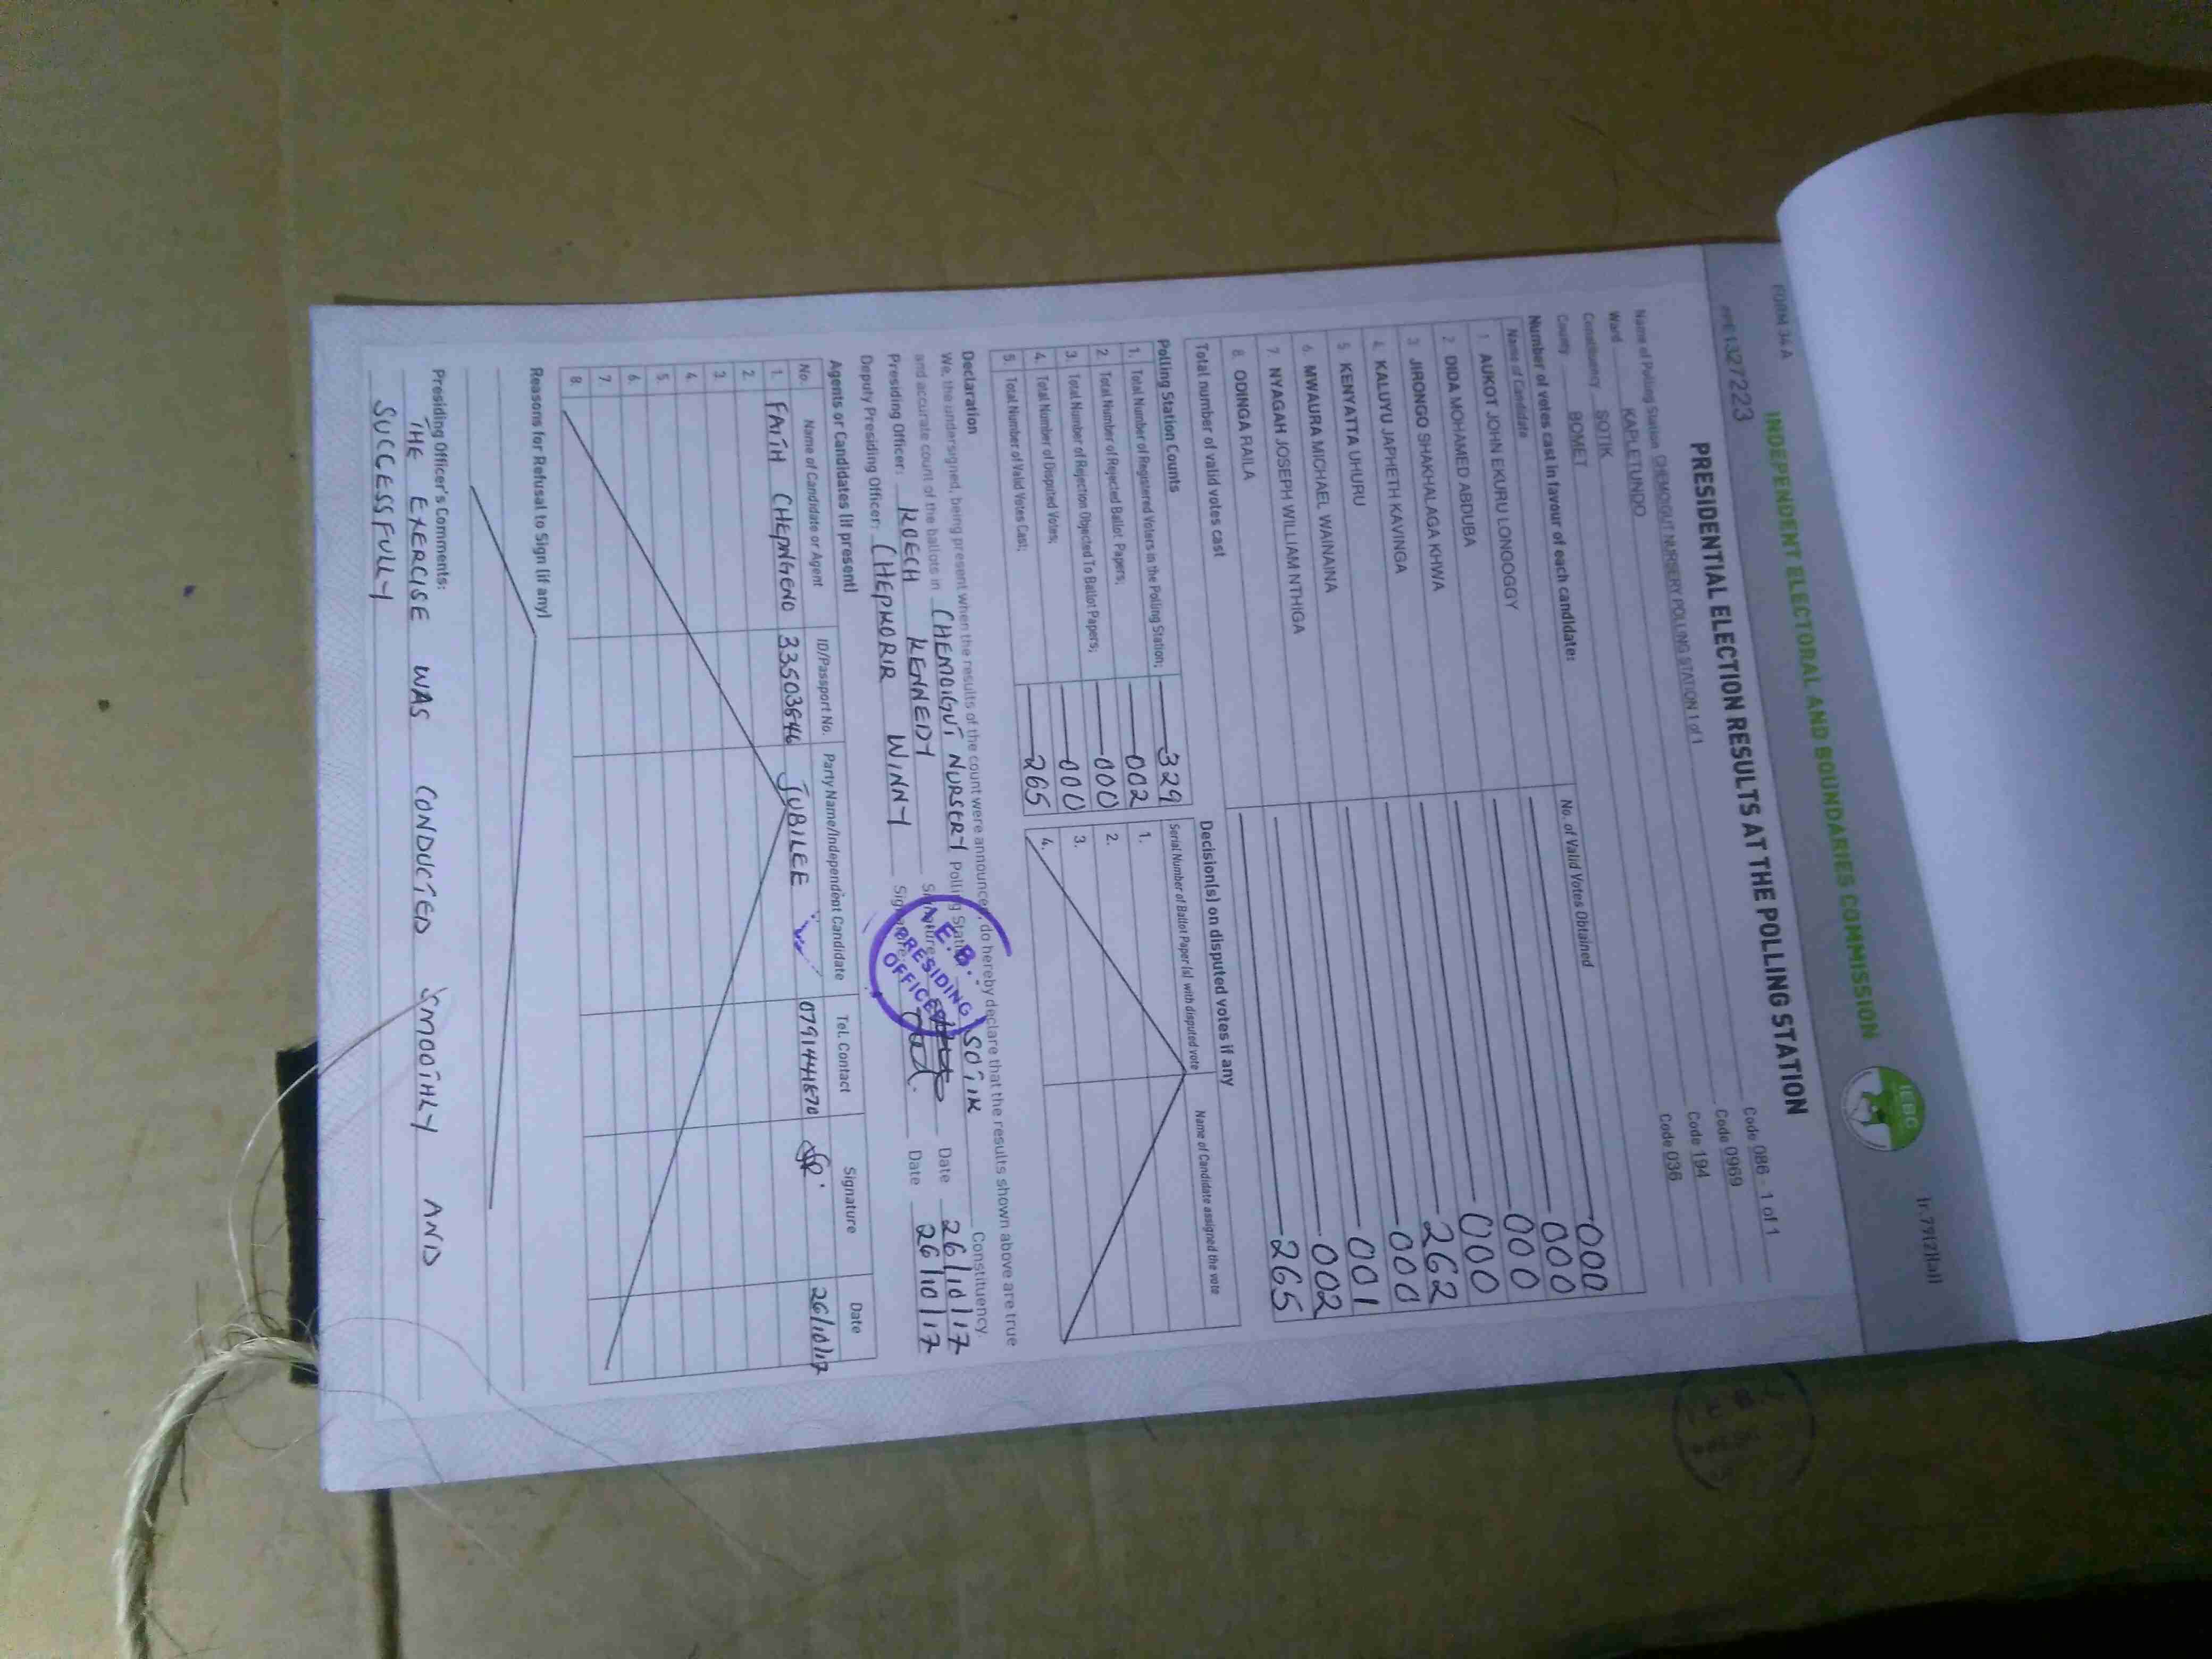 Ir.79(2)(a)
FORM 34 A
INDEPENDENT ELECTORAL AND BOUNDARIES COMMISSION
IEBC
PRE 1327223
PRESIDENTIAL ELECTION RESULTS AT THE POLLING STATION
Name of Polling Station CHEMOIGUT NURSERY POLLING STATION 1 of 1 Code 086 - 1 of 1
Ward KAPLETUNDO Code 0969
Constituency SOTIK Code 194
County BOMET Code 036
Number of votes cast in favour of each candidate:
Name of Candidate No. of Valid Votes Obtained
1 AUKOT JOHN EKURU LONGOGGY 000
2 DIDA MOHAMED ABDUBA 000
3 JIRONGO SHAKHALAGA KHWA 000
4 KALUYU JAPHETH KAVINGA 000
5 KENYATTA UHURU 262
6 MWAURA MICHAEL WAINAINA 000
7 NYAGAH JOSEPH WILLIAM NTHIGA 001
8 ODINGA RAILA 002
Total number of valid votes cast 265
Polling Station Counts
1. Total Number of Registered Voters in the Polling Station; 329
2. Total Number of Rejected Ballot Papers; 002
3. Total Number of Rejection Objected To Ballot Papers; 000
4. Total Number of Disputed Votes; 000
5. Total Number of Valid Votes Cast; 265
Decision(s) on disputed votes if any
Serial Number of Ballot Paper (s) with disputed vote Name of Candidate assigned the vote
1.
2.
3.
4.
Declaration
We, the undersigned, being present when the results of the count were announced, do hereby declare that the results shown above are true
and accurate count of the ballots in CHEMOIGUT NURSERY Polling Station SOTIK Constituency.
Presiding Officer: KOECH KENNEDY Signature Date 26/10/17
Deputy Presiding Officer: CHEPKORIR WINNY Signature Date 26/10/17
E.B.
PRESIDING
OFFICER
Agents or Candidates (if present)
No. Name of Candidate or Agent ID/Passport No. Party Name/Independent Candidate Tel. Contact Signature Date
1. FAITH CHEPNGENO 33503846 JUBILEE 0791441870 26/10/17
2.
3.
4.
5.
6.
7.
8.
Reasons for Refusal to Sign (if any)
Presiding Officer's Comments:
THE EXERCISE WAS CONDUCTED SMOOTHLY AND
SUCCESSFULLY